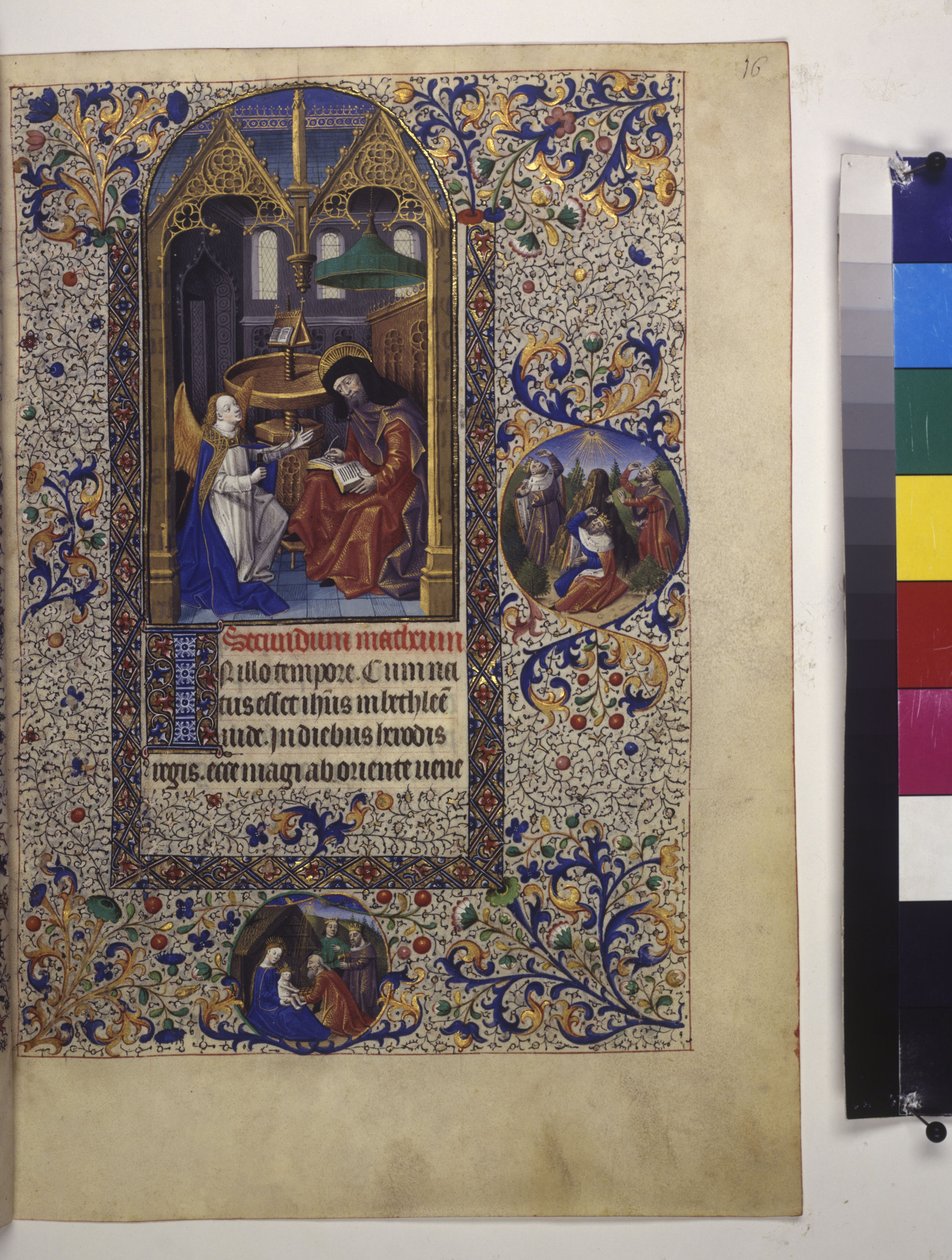 16
Secundum matheum
In illo tempore. Cum na
tus esset ihūs in bethleē
iude. in diebus herodis
regis. ecce magi ab oriente uene